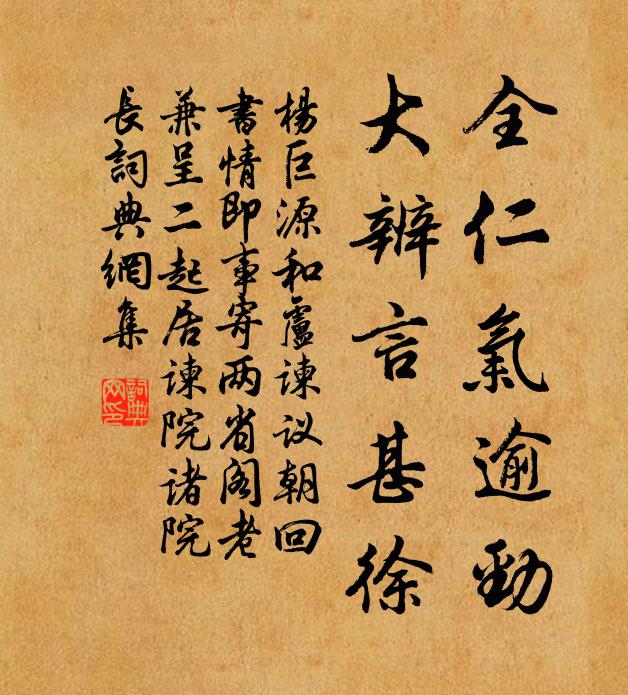 全仁氣逾勁
大辨言甚徐
楊巨源和盧諫议朝回
書情即事寄两省阁老
兼呈二起居諫院诸院
長詞典網集
詞典
网印